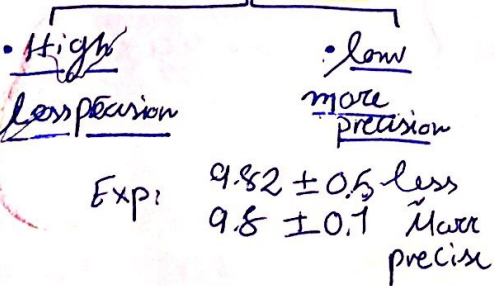 • High
Less precision
• low
more
precision
Exp: 9.82 ± 0.5 less
9.8 ± 0.1 More
precise